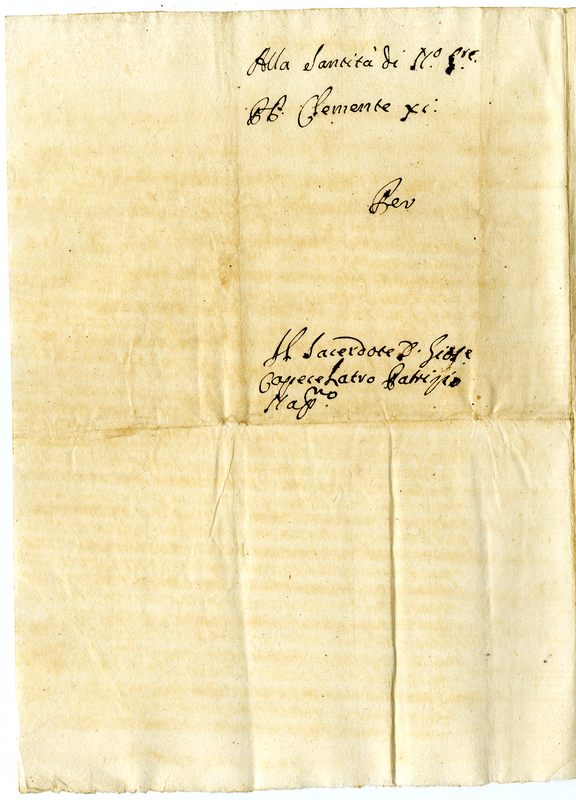 Alla Santità di N.o S.re
PP. Clemente xi.
Per
Il Sacerdote D. Giose
Capecelatro Patrizio
Nap.no